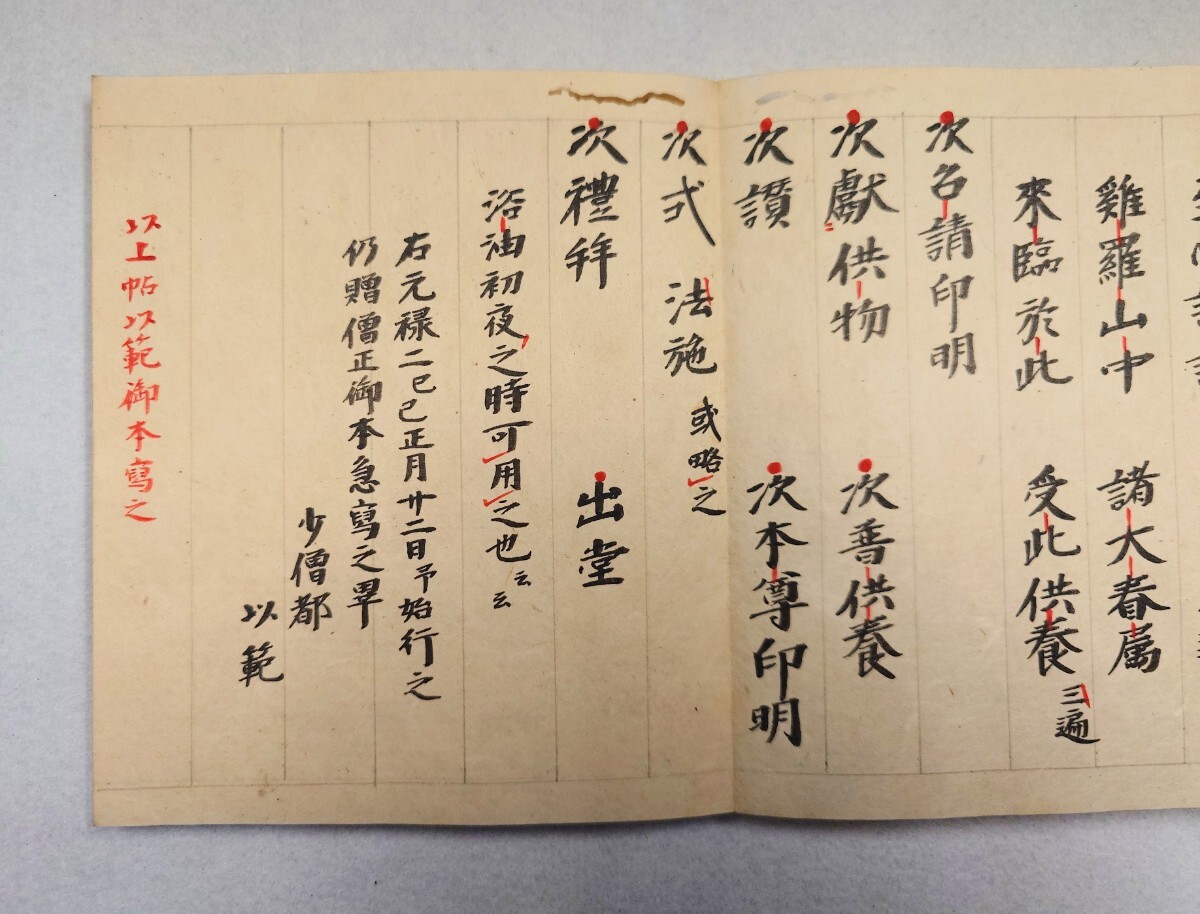 雞羅山中　諸大眷属
来臨於此　受此供養 三遍
次召請印明
次獻供物　次普供養
次讃　次本尊印明
次式　法施 或略之
次禮拜　出堂
浴油初夜之時可用之也云云
右元禄二己巳正月廿二日予始行之
仍贈僧正御本急寫之畢
少僧都
以範
以上帖以範御本寫之